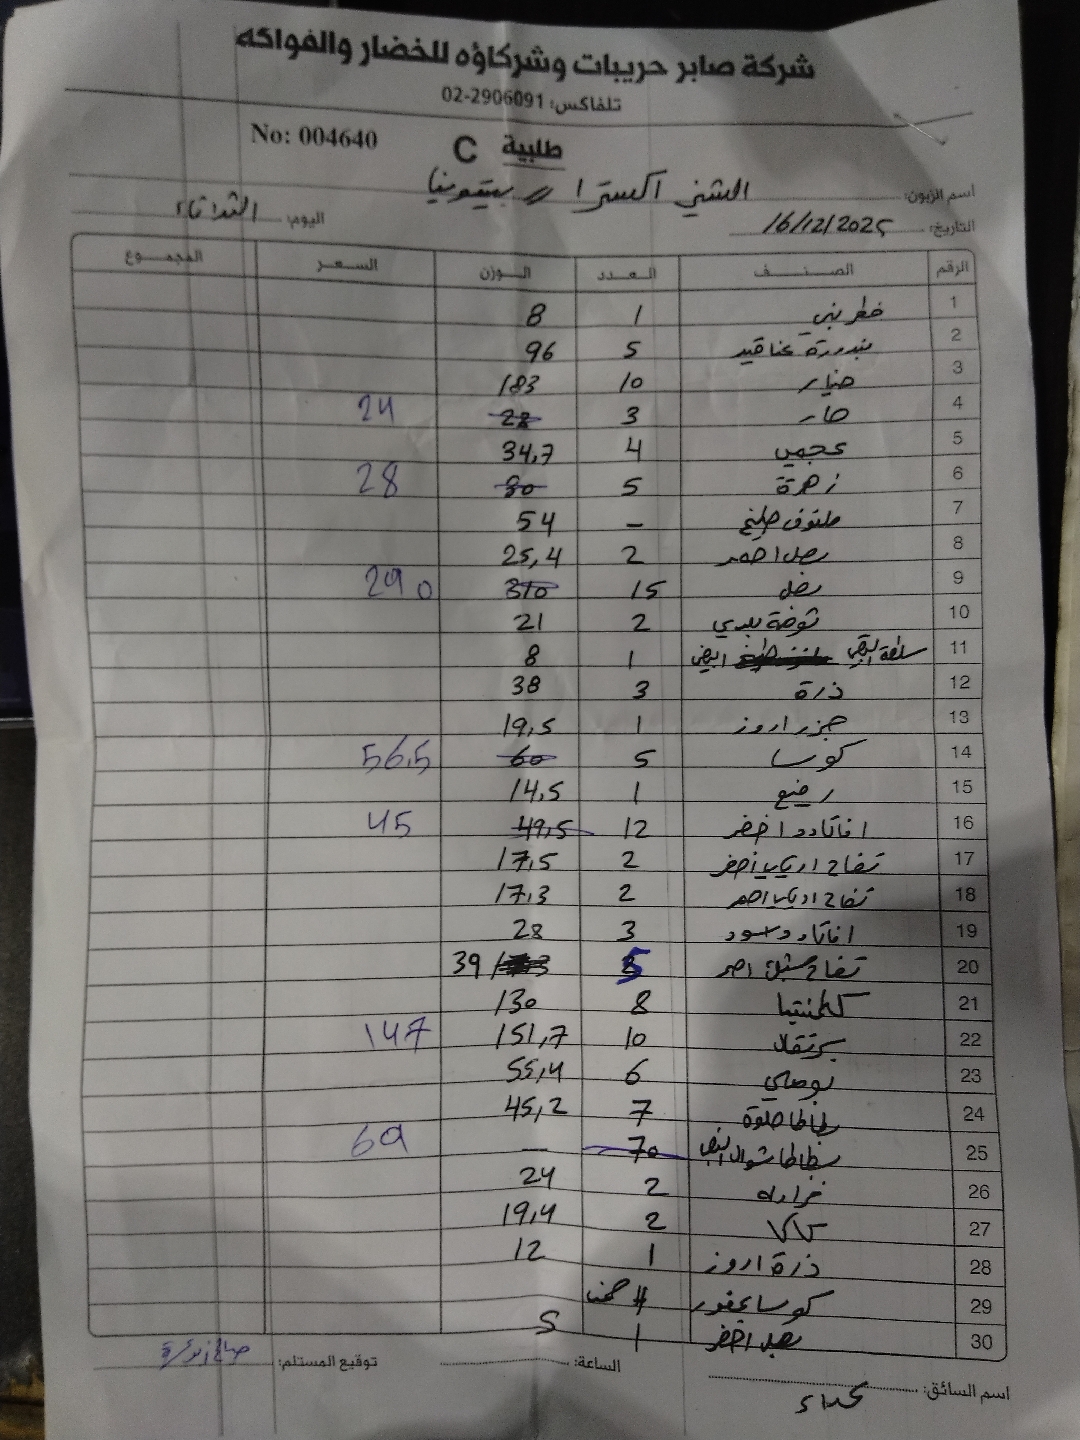 شركة صابر حريبات وشركاؤه للخضار والفواكه
تلفاكس: 02-2906091
No: 004640 C طلبية
اسم الزبون: الشني اكسترا // بيتونيا
التاريخ: 16/12/2025 اليوم: الثلاثاء
الرقم الصنف العدد الوزن السعر المجموع
1 فطر بني 1 8
2 بندورة عناقيد 5 96
3 خيار 10 183
4 حار 3 28 24
5 عجمي 4 34,7
6 زهرة 5 30 28
7 ملفوف - 54
8 بصل احمر 2 25,4
9 بصل 15 310 290
10 بلدي 2 21
11 سلطة ابيض 1 8
12 ذرة 3 38
13 جزر اروز 1 19,5
14 كوسا 5 60 56.5
15 رفيع 1 14,5
16 افاكادو اخضر 12 49,5 45
17 تفاح اخضر 2 17,5
18 تفاح احمر 2 17,3
19 افاكادو اسود 3 28
20 تفاح احمر 5 39
21 كلمنتينا 8 130
22 برتقال 10 151,7 147
23 بوملي 6 55,4
24 بطاطا حلوة 7 45,2
25 بطاطا شوال ابيض 70 — 69
26 2 24
27 كاكا 2 19,4
28 ذرة اروز 1 12
29 كوسا
30 بصل اخضر 1 5
اسم السائق: الساعة: توقيع المستلم: